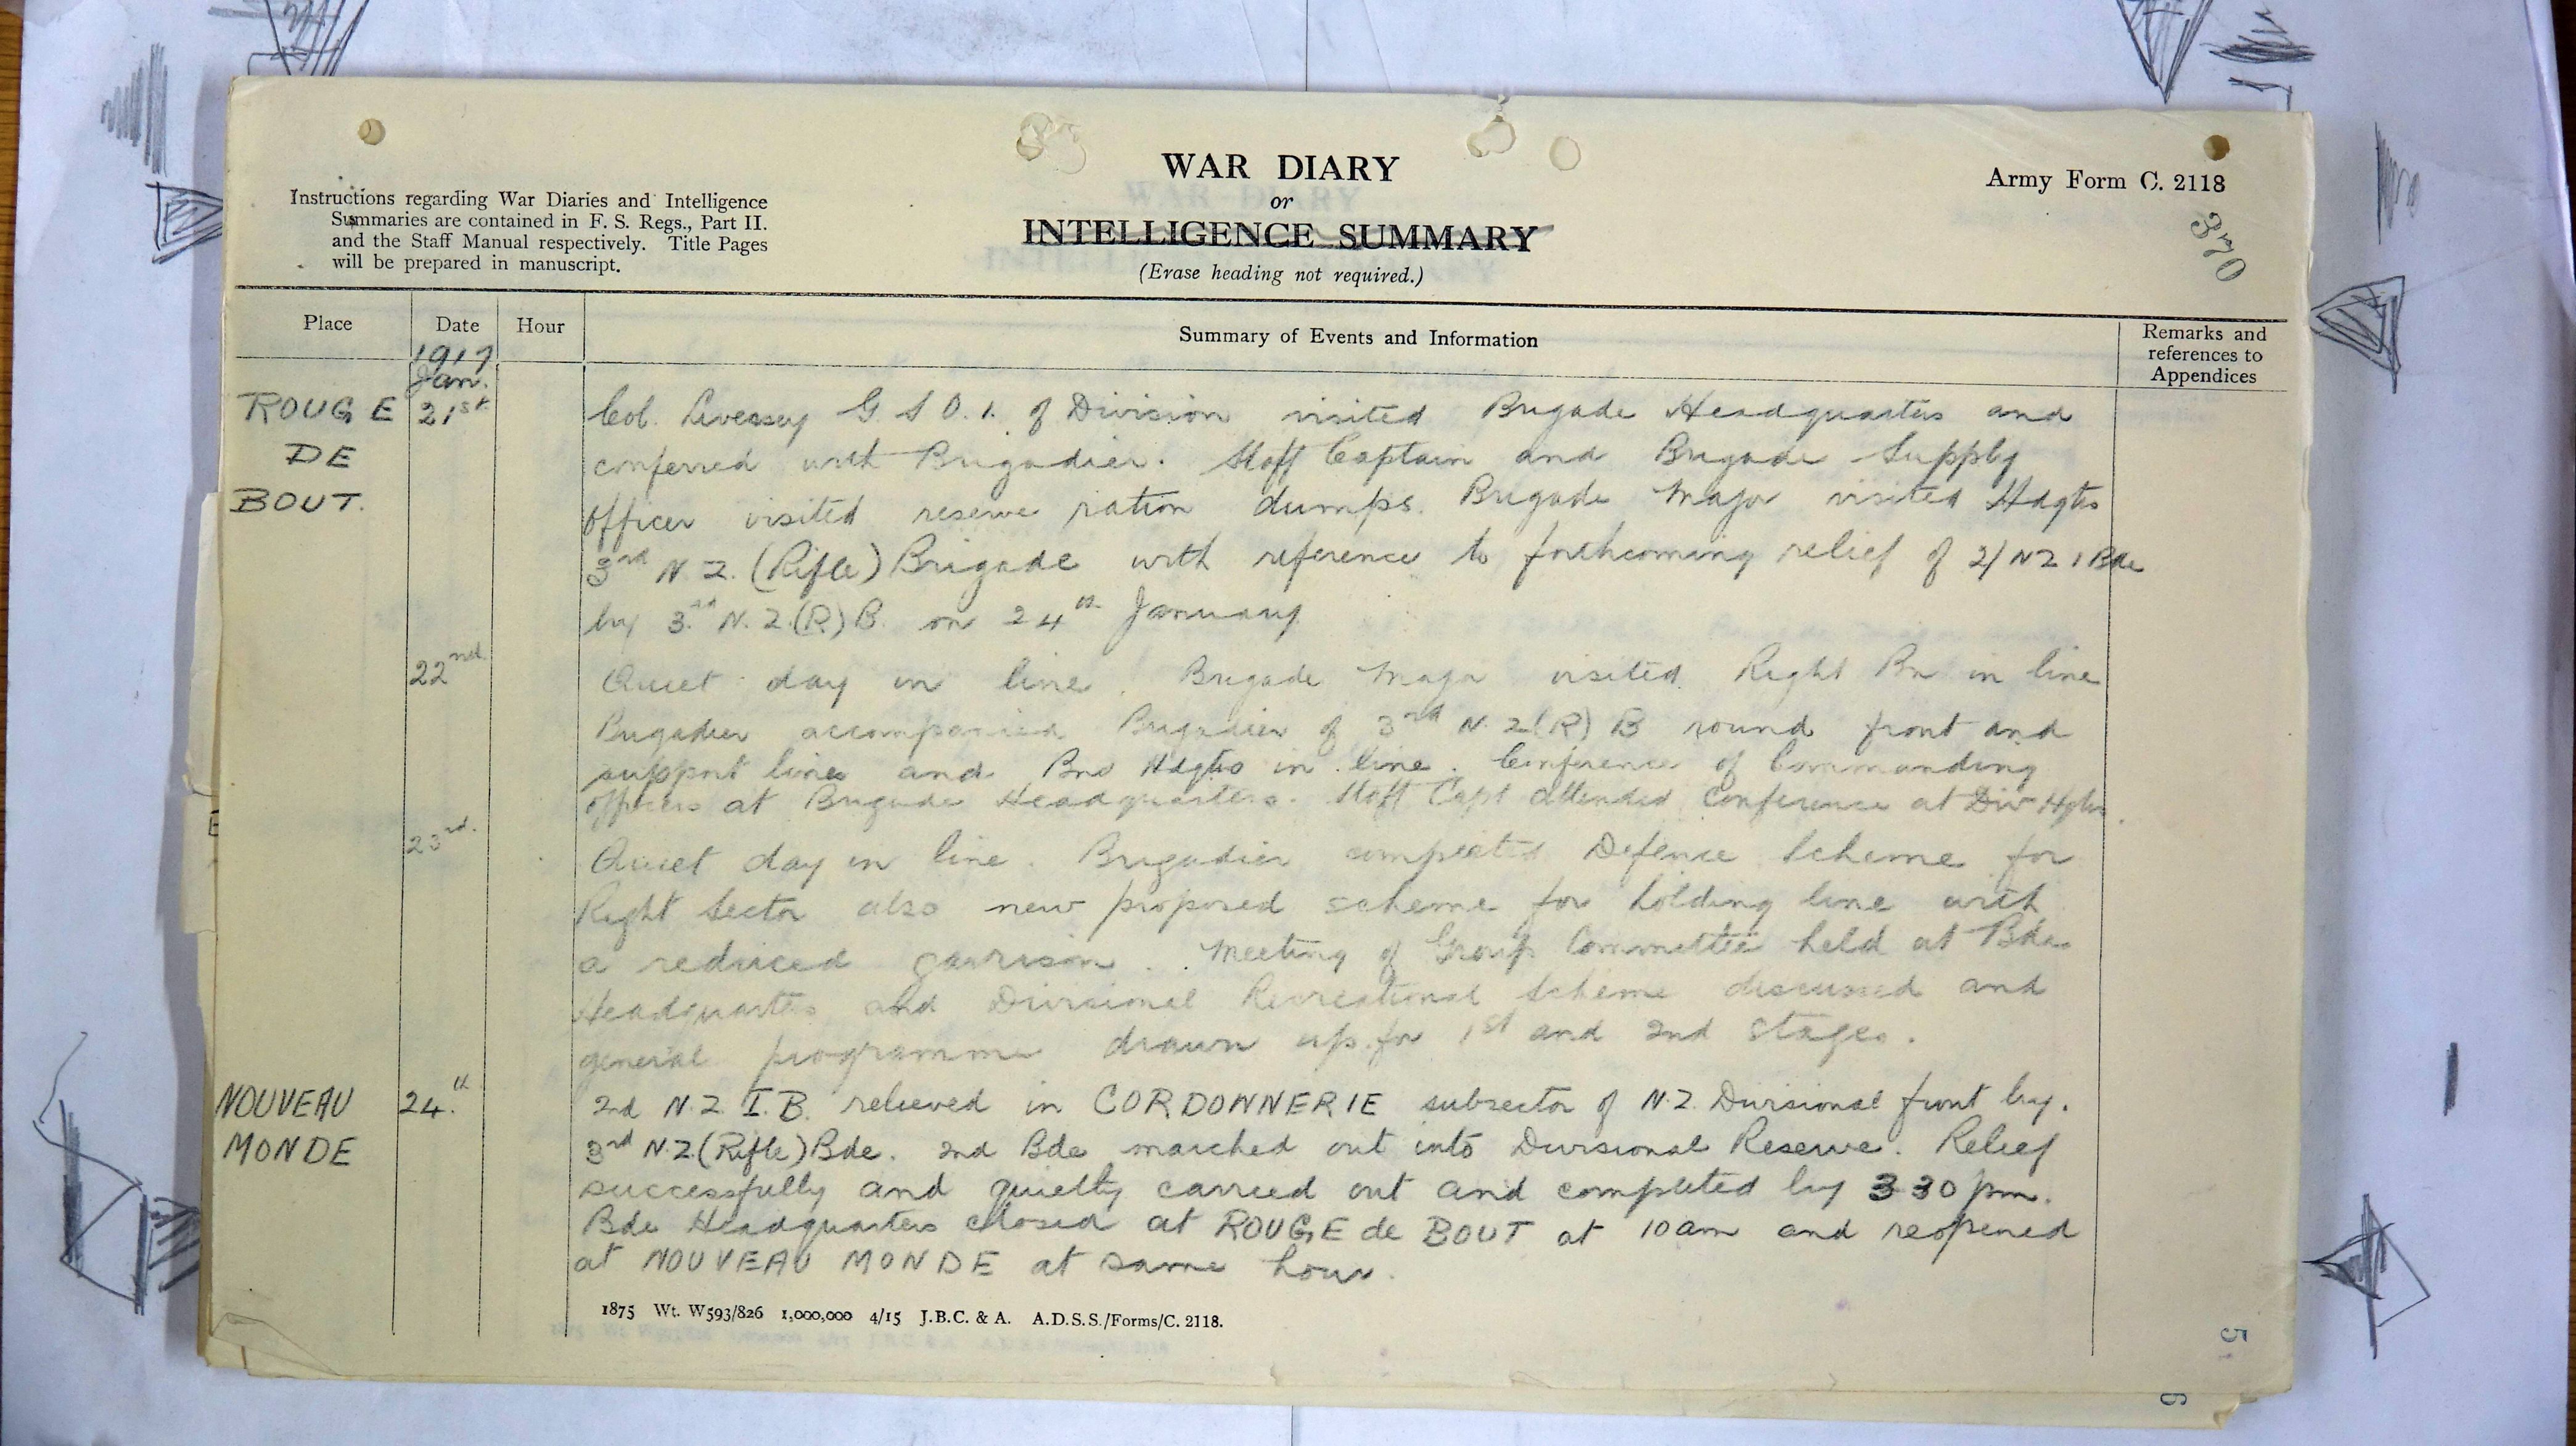 WAR DIARY
or
INTELLIGENCE SUMMARY
(Erase heading not required.)
Army Form C. 2118
370
Instructions regarding War Diaries and Intelligence
Summaries are contained in F. S. Regs., Part II.
and the Staff Manual respectively. Title Pages
will be prepared in manuscript.
Place Date Hour Summary of Events and Information Remarks and references to Appendices
1917
Jan.
ROUGE DE BOUT. 21st Col. Livessey G S O. 1. of Division visited Brigade Headquarters and
conferred with Brigadier. Staff Captain and Brigade Supply
Officer visited reserve ration dumps. Brigade Major visited Hdqts
3rd N.Z. (Rifle) Brigade with reference to forthcoming relief of 2/NZ I Bde
by 3rd N.Z.(R) B. on 24th January
22nd Quiet day in line. Brigade Major visited Right Bn in line
Brigadier accompanied Brigadier of 3rd N.Z(R) B round front and
support lines and Bns Hdqts in line. Conference of Commanding
officers at Brigade Headquarters. Staff Capt attended conference at Div Hqtrs.
23rd. Quiet day in line. Brigadier completed Defence Scheme for
Right Sector also new proposed scheme for holding line with
a reduced garrison. Meeting of Group Committee held at Bde
Headquarters and Divisional Recreational Scheme discussed and
general programme drawn up for 1st and 2nd stages.
NOUVEAU MONDE 24.th 2nd N.Z I.B. relieved in CORDONNERIE subsector of N.Z. Divisional front by.
3rd N.Z.(Rifle) Bde. 2nd Bde marched out into Divisional Reserve. Relief
successfully and quietly carried out and completed by 3 30 pm.
Bde Headquarters closed at ROUGE de BOUT at 10am and reopened
at NOUVEAU MONDE at same hour.
1875 Wt. W593/826 1,000,000 4/15 J.B.C. & A. A.D.S.S./Forms/C. 2118.
5